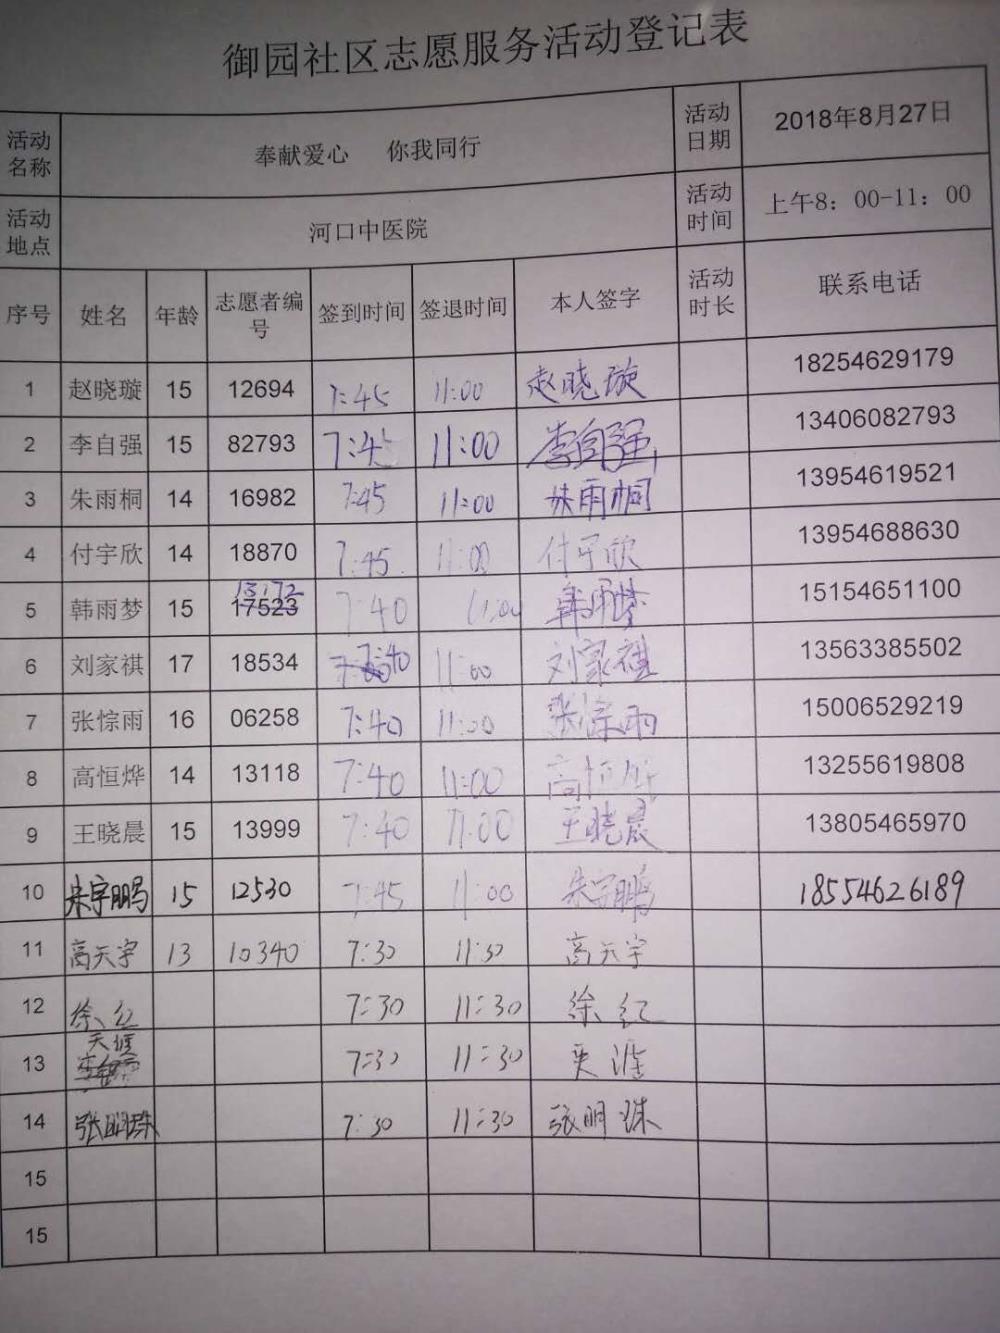 御园社区志愿服务活动登记表
活动名称 奉献爱心 你我同行 活动日期 2018年8月27日
活动地点 河口中医院 活动时间 上午8：00-11：00
序号 姓名 年龄 志愿者编号 签到时间 签退时间 本人签字 活动时长 联系电话
1 赵晓璇 15 12694 7:45 11:00 赵晓璇 18254629179
2 李自强 15 82793 7:45 11:00 李自强 13406082793
3 朱雨桐 14 16982 7:45 11:00 朱雨桐 13954619521
4 付宇欣 14 18870 7:45 11:00 付宇欣 13954688630
5 韩雨梦 15 17523 13172 7:40 11:00 韩雨梦 15154651100
6 刘家祺 17 18534 7:40 11:00 刘家祺 13563385502
7 张悰雨 16 06258 7:40 11:00 张悰雨 15006529219
8 高恒烨 14 13118 7:40 11:00 高恒烨 13255619808
9 王晓晨 15 13999 7:40 11:00 王晓晨 13805465970
10 朱宇鹏 15 12530 7:45 11:00 朱宇鹏 18554626189
11 高天宇 13 10340 7:30 11:30 高天宇
12 徐红 7:30 11:30 徐红
13 7:30 11:30
14 张明珠 7:30 11:30 张明珠
15
15